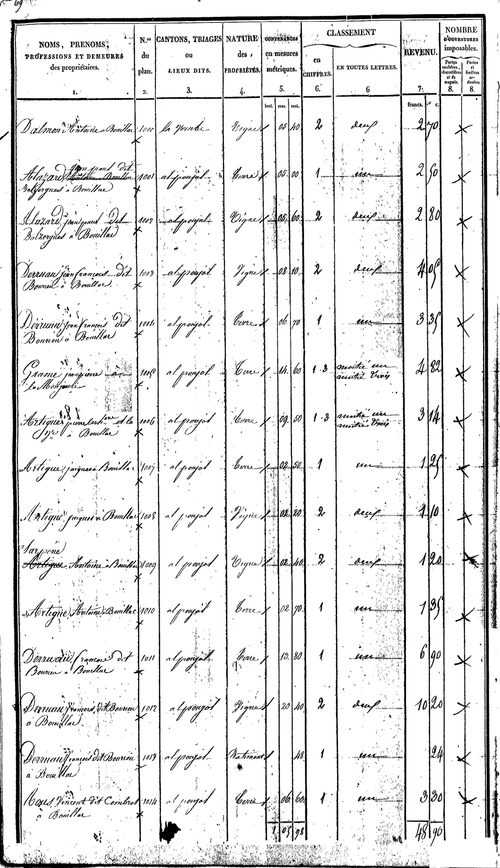 69
NOMS, PRENOMS, PROFESSIONS ET DEMEURES des propriétaires. N.os du plan. CANTONS, TRIAGES ou LIEUX DITS. NATURE des PROPRIÉTÉS. CONTENANCES en mesures métriques. CLASSEMENT en CHIFFRES. EN TOUTES LETTRES. REVENU. NOMBRE D'OUVERTURES imposables.
1. 2. 3. 4. 5. 6. 6 7. 8. 8.
hect. ares. cent. francs. c.
Dalmon Antoine a Bouillac 1000 Vigne 05 40 2 deux 2 70
Alazard jean paul dit Balzergues a Bouillac 1001 al poujol terre 05 00 1 un 2 50
Alazard jean paul dit Balzergues a Bouillac 1002 al poujol Vigne 05 60 2 deux 2 80
Derruau jean francois dit Bouriou a Bouillac 1003 al poujol Vigne 08 10 2 deux 4 05
Derruau jean francois dit Bouriou a Bouillac 1004 al poujol terre 06 70 1 un 3 35
jean pierre 1005 al poujol terre 14 60 1-3 moitié un moitié trois 4 82
Artigue a Bouillac 1006 al poujol terre 09 50 1-3 moitié un moitié trois 3 14
Artigue jacques a Bouillac 1007 al poujol terre 02 50 1 un 1 25
Artigue jacques a Bouillac 1008 al poujol Vigne 02 20 2 deux 1 10
Antoine a Bouillac 1009 al poujol Vigne 02 40 2 deux 1 20
Artigue Antoine a Bouillac 1010 al poujol terre 02 70 1 un 1 35
Derruau francois dit Bouriou a Bouillac 1011 al poujol terre 13 80 1 un 6 90
Derruau francois dit Bouriou a Bouillac 1012 al poujol Vigne 20 40 2 deux 10 20
Derruau francois dit Bouriou a Bouillac 1013 al poujol Batiment 48 1 un 24
Vincent dit Combrot a Bouillac 1014 al poujol terre 06 60 1 un 3 30
1 05 98 48 90